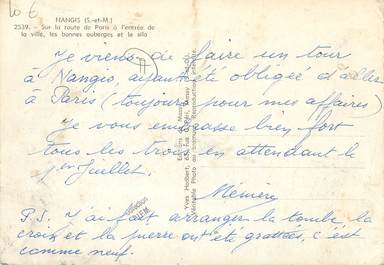 10 €
NANGIS (S.-et-M.)
2539. - Sur la route de Paris à l'entrée de
la ville, les bonnes auberges et le silo
Je viens de faire un tour
à Nangis, ayant été obligée d'aller
à Paris (toujours pour mes affaires)
Je vous embrasse bien fort
tous les trois en attendant le
1er Juillet.
Mémère
P.S. J'ai fait arranger la tombe, la
croix et la pierre ont été grattées, c'est
comme neuf.
Véritable Photo au bromure Reproduction interdite